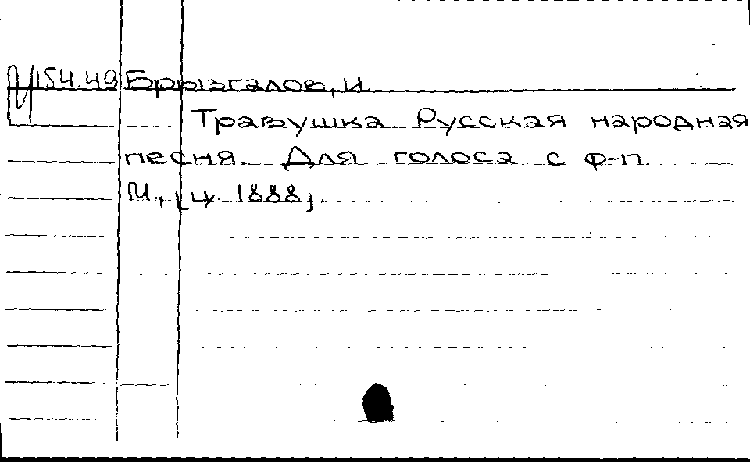 154.49 Брызгалов, И.
Травушка Русская народная
песня. Для голоса с ф-п.
М., [ц. 1888]